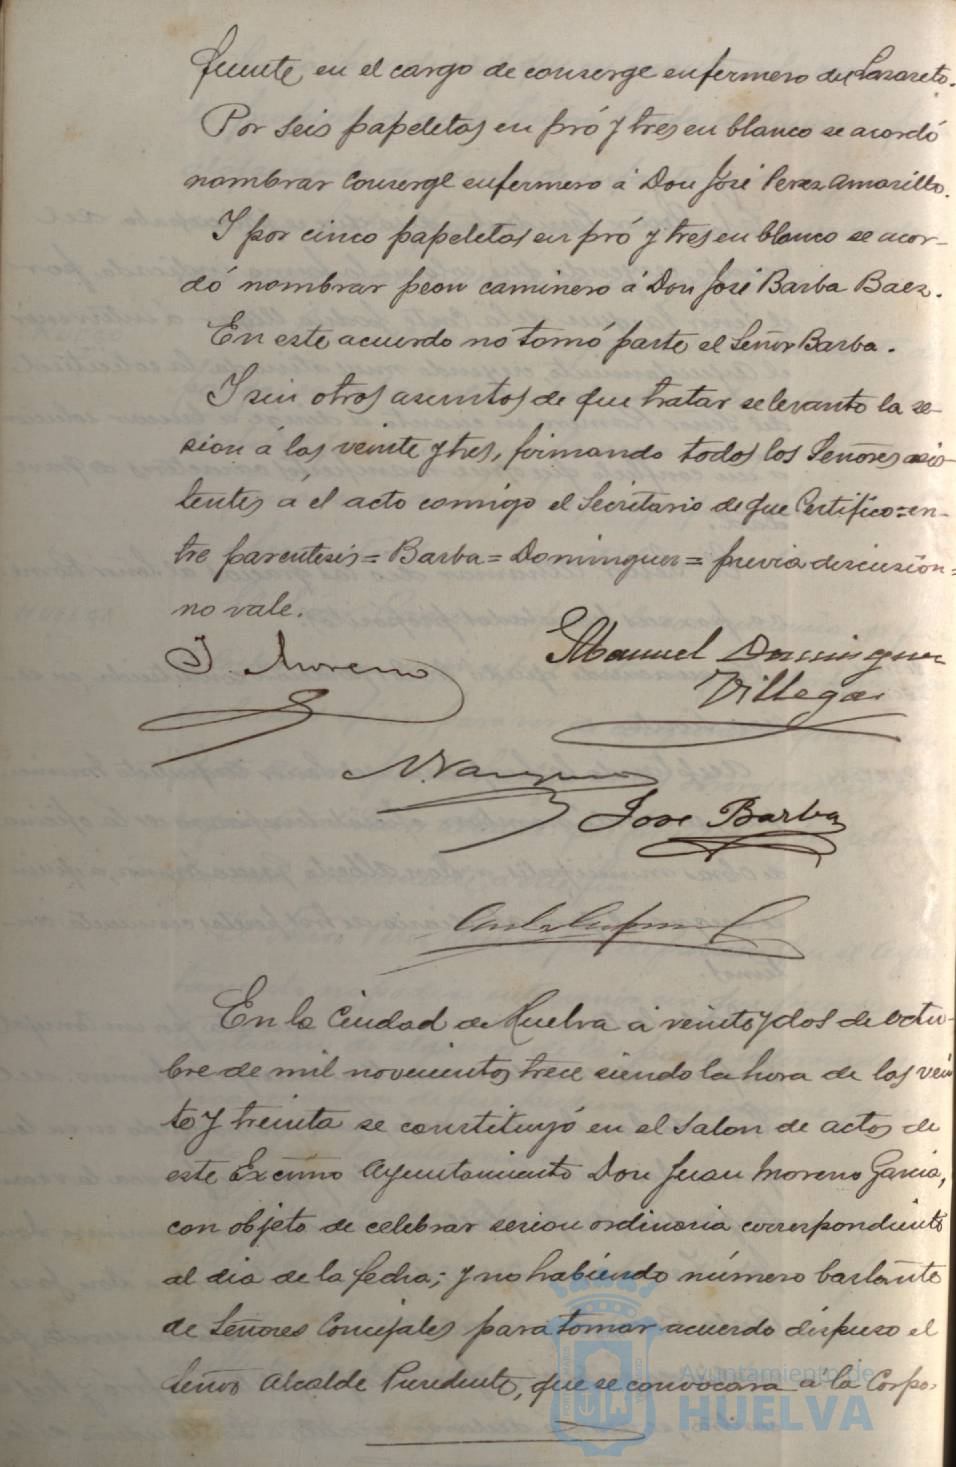 fuente en el cargo de conserge enfermero del Lazareto.
Por seis papeletas en pró y tres en blanco se acordó
nombrar Conserge enfermero á Don José Perez Amarillo.
Y por cinco papeletas en pró y tres en blanco se acor-
dó nombrar peon caminero á Don José Barba Baez.
En este acuerdo no tomó parte el Señor Barba.
Y sin otros asuntos de que tratar se levanto la se-
sion á las veinte y tres, firmando todos los Señores asis-
tentes á el acto comigo el Secretario de que Certifico=en-
tre parentesis=Barba=Dominguez=previa discusión=
no vale.
J. Moreno
Manuel Dominguez
Villegas
N. Vazquez
Jose Barba
En la Ciudad de Huelva á veinte y dos de Octu-
bre de mil novecientos trece siendo la hora de las vein
te y treinta se constituyó en el Salon de actos de
este Excmo Ayuntamiento Don Juan Moreno Garcia,
con objeto de celebrar sesion ordinaria correspondiente
al dia de la fecha; y no habiendo número bastante
de Señores Concejales para tomar acuerdo dispuso el
Señor Alcalde Presidente, que se convocara á la Corpo-
Ayuntamiento de
HUELVA